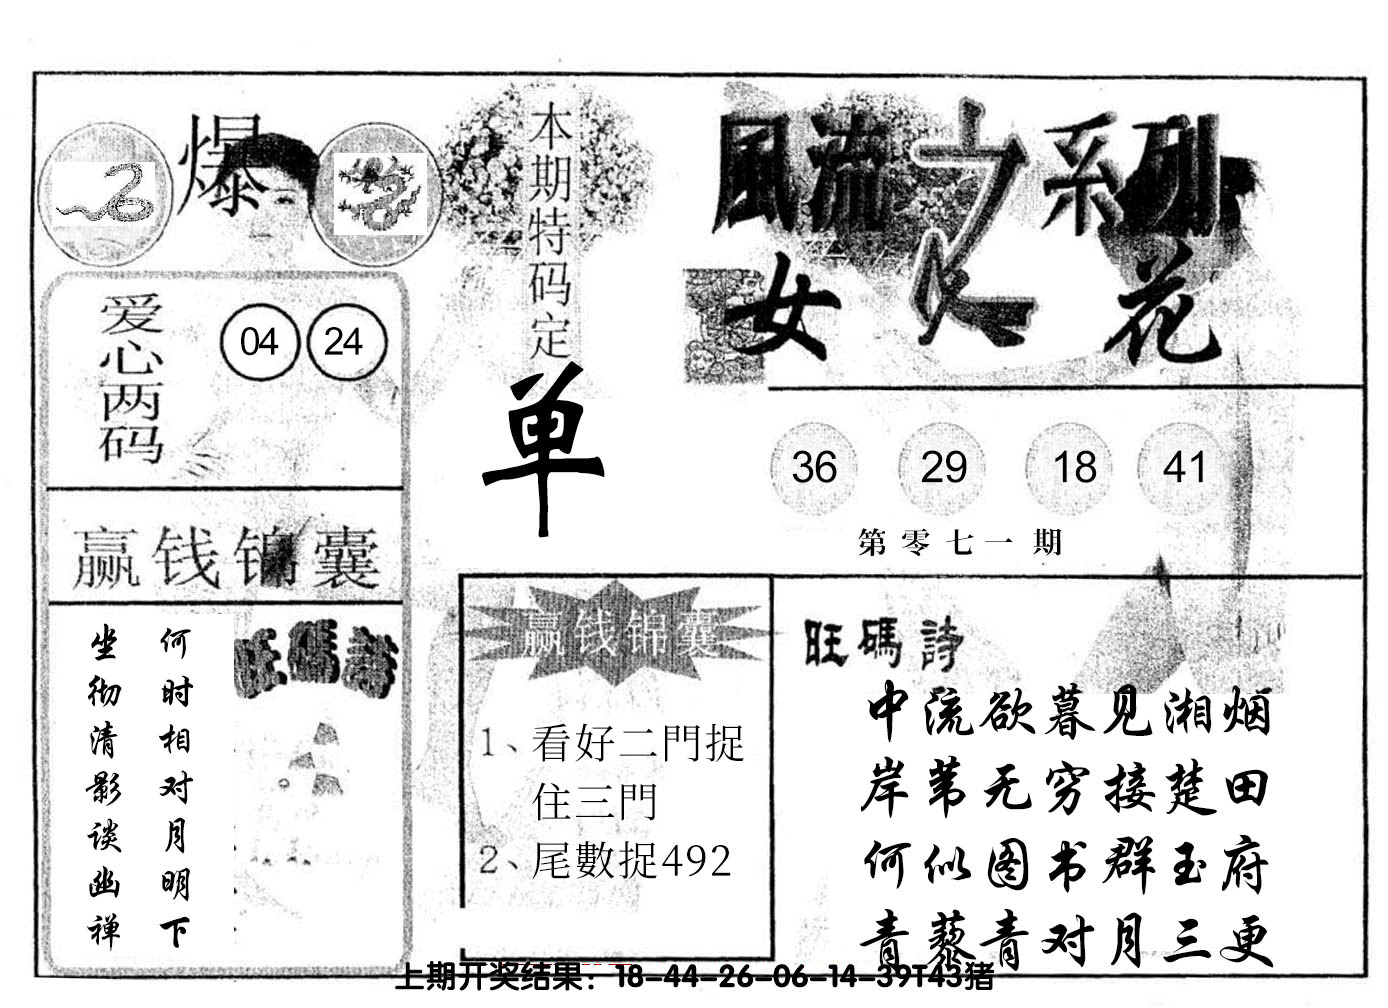 爆
本期特码定
单
風流之系列
女人花
爱心两码
04 24
36 29 18 41
第零七一期
赢钱锦囊
何时相对月明下
坐彻清影谈幽禅
旺碼詩
赢钱锦囊
1、看好二門捉
住三門
2、尾數捉492
旺碼詩
中流欲暮见湘烟
岸苇无穷接楚田
何似图书群玉府
青藜青对月三更
上期开奖结果：18-44-26-06-14-39T43猪